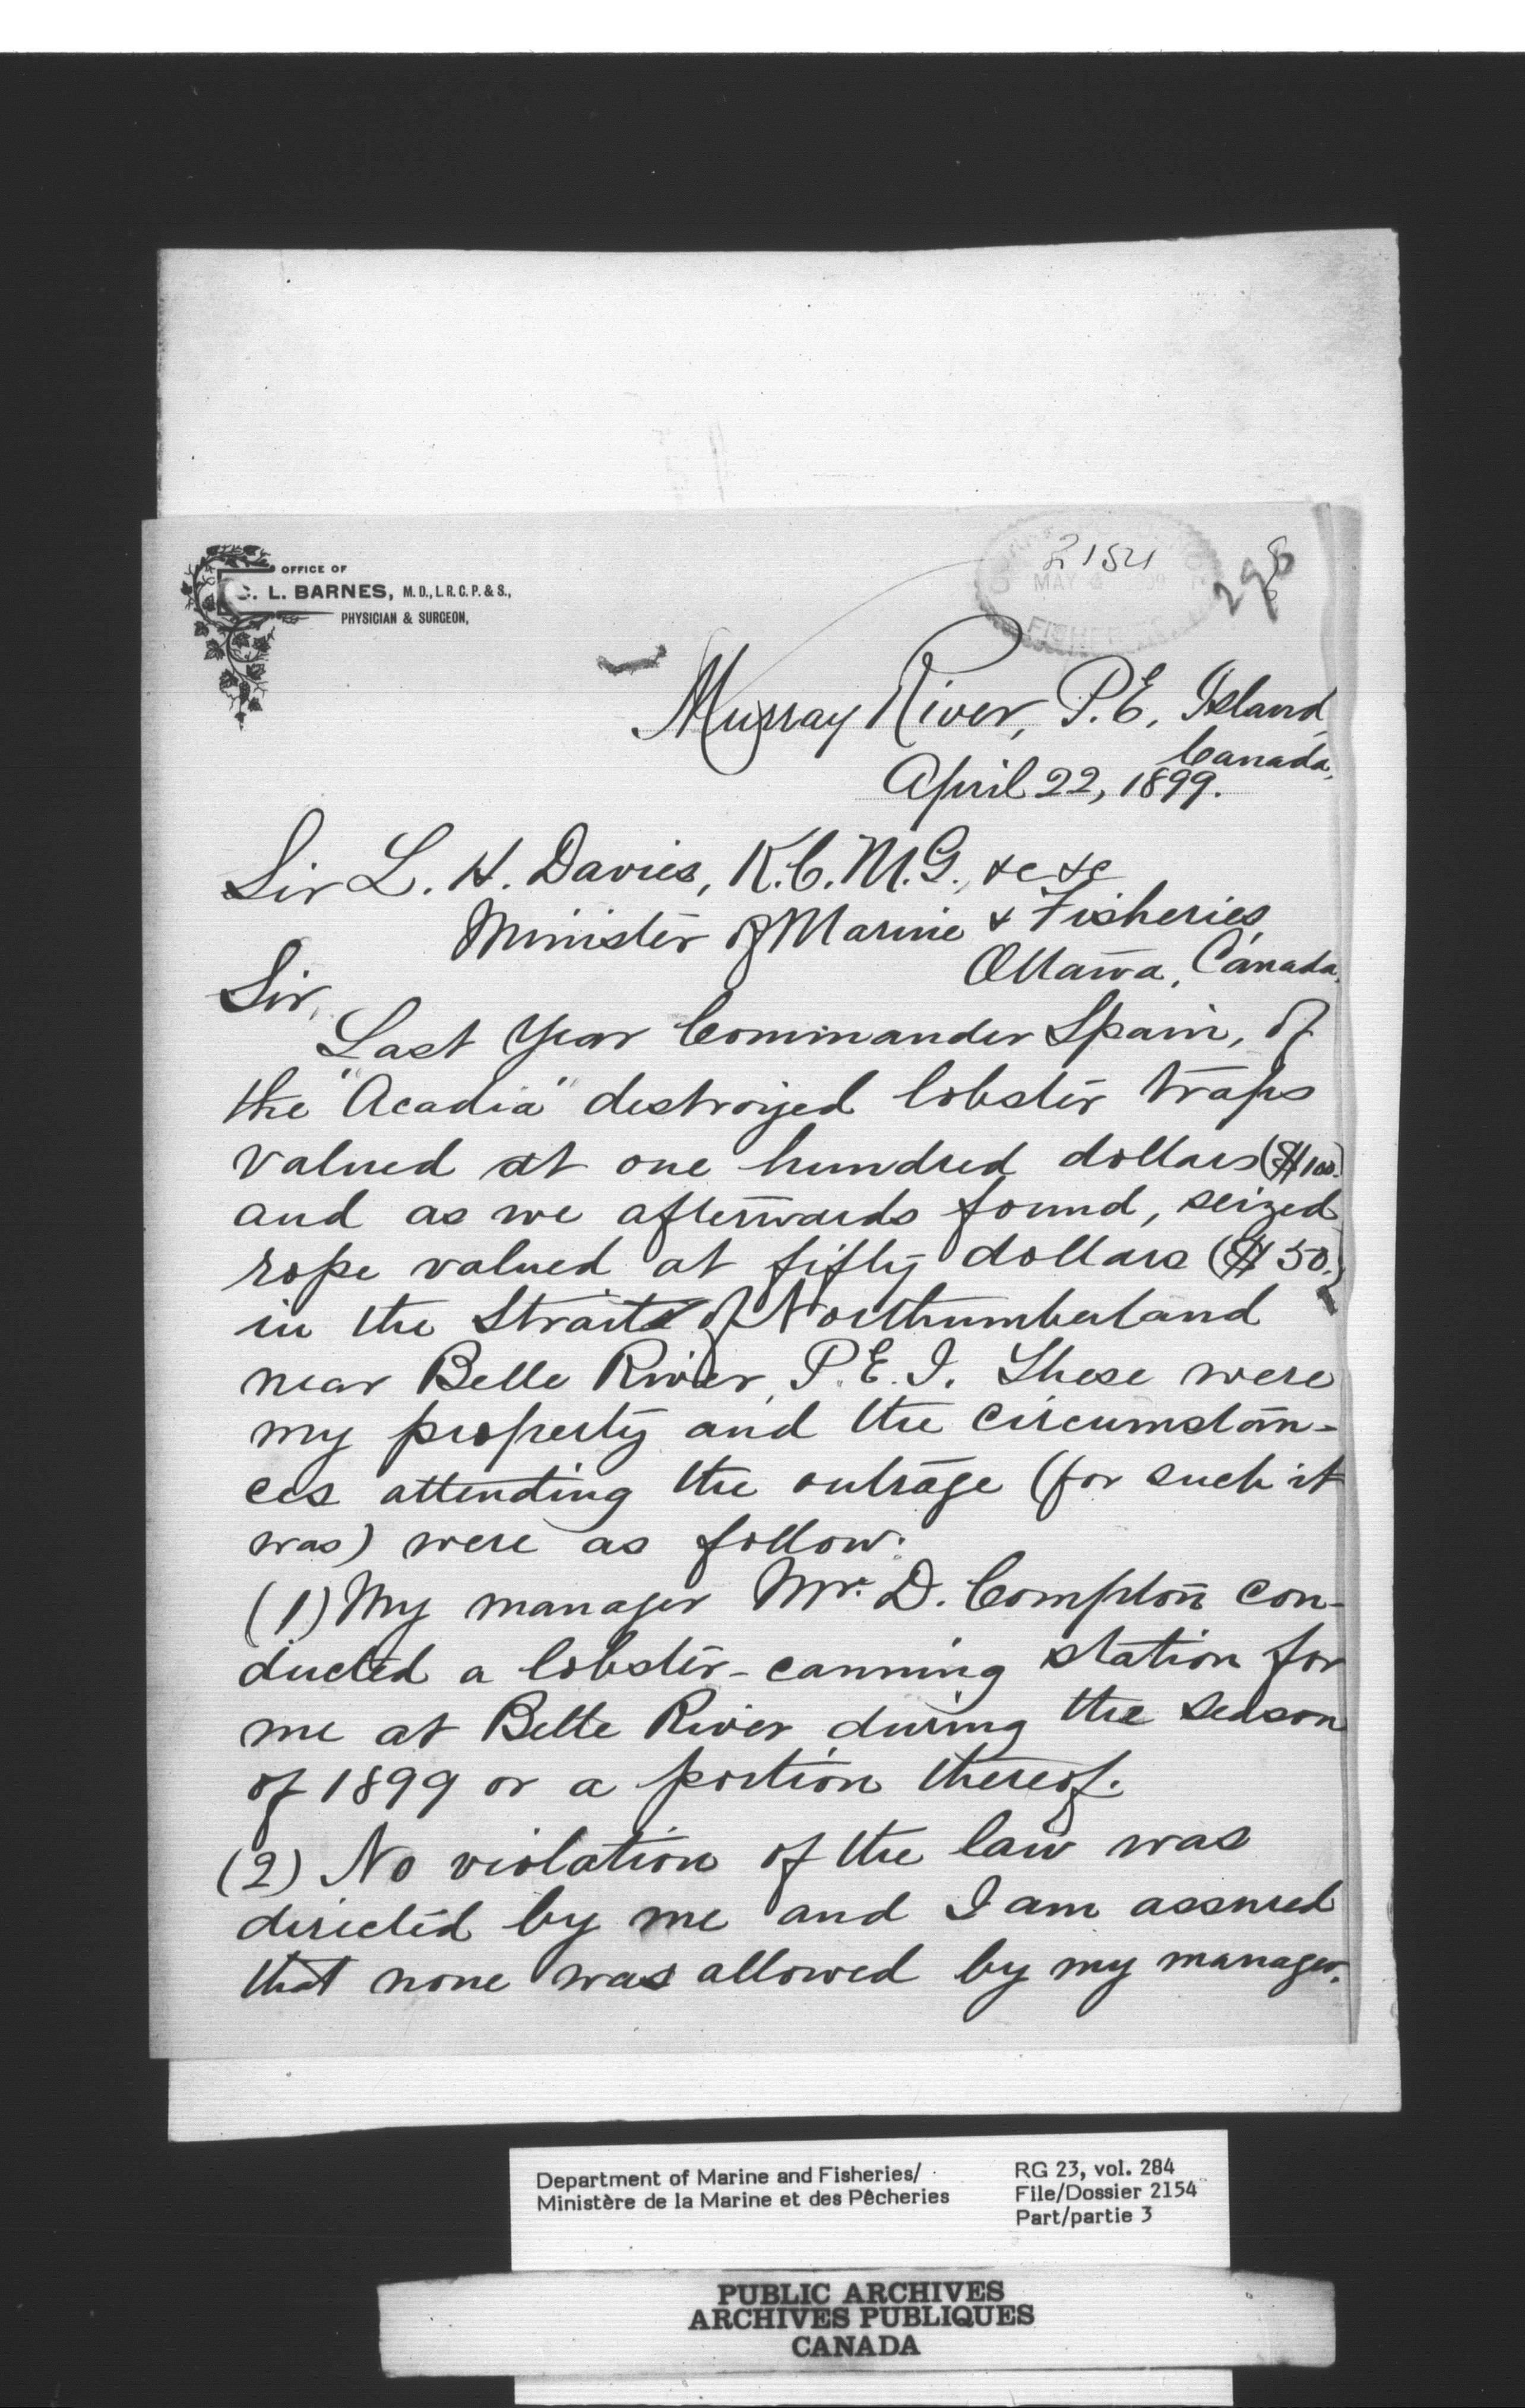 OFFICE OF
C. L. BARNES, M.D., L.R.C.P. & S.,
PHYSICIAN & SURGEON,
2154
MAY 4 1899
FISHERIES
298
Murray River, P.E. Island,
Canada,
April 22, 1899.
Sir L. H. Davies, K.C.M.G., &c &c
Minister of Marine & Fisheries,
Ottawa, Canada.
Sir,
Last Year Commander Spain, of
the "Acadia" destroyed lobster traps
valued at one hundred dollars ($100.)
and as we afterwards found, seized
rope valued at fifty dollars ($50.)
in the Straits of Northumberland
near Belle River, P.E.I. These were
my property and the circumstan-
ces attending the outrage (for such it
was) were as follow:
(1) My manager Mr. D. Compton con-
ducted a lobster-canning station for
me at Belle River during the season
of 1899 or a portion thereof.
(2) No violation of the law was
directed by me and I am assured
that none was allowed by my manager.
Department of Marine and Fisheries/
Ministère de la Marine et des Pêcheries
RG 23, vol. 284
File/Dossier 2154
Part/partie 3
PUBLIC ARCHIVES
ARCHIVES PUBLIQUES
CANADA